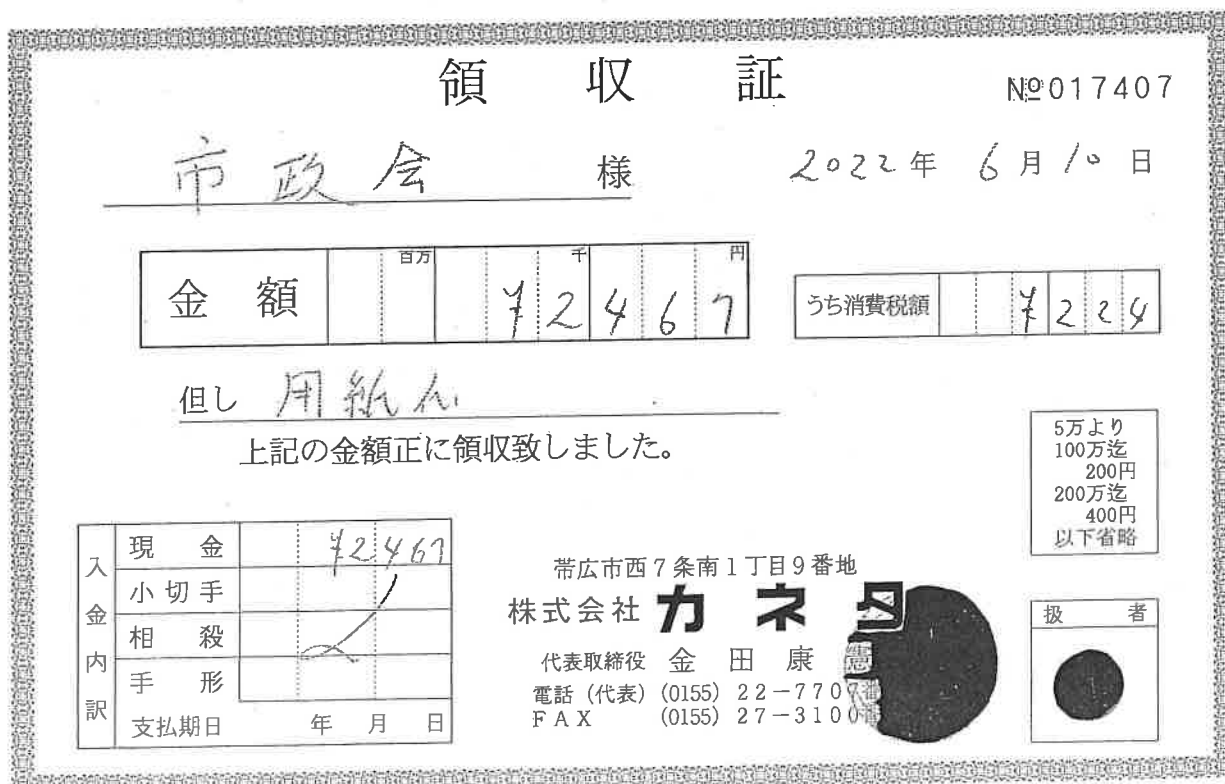 領収証
№017407
市政会 様
2022年 6月10日
金額 百万 千 円 ¥2467
うち消費税額 ¥224
但し 用紙代
上記の金額正に領収致しました。
5万より
100万迄
200円
200万迄
400円
以下省略
入金内訳
現金 ¥2467
小切手
相殺
手形
支払期日 年 月 日
帯広市西7条南1丁目9番地
株式会社 カネタ
代表取締役 金田康憲
電話(代表)(0155)22-7707番
FAX (0155)27-3100番
扱者